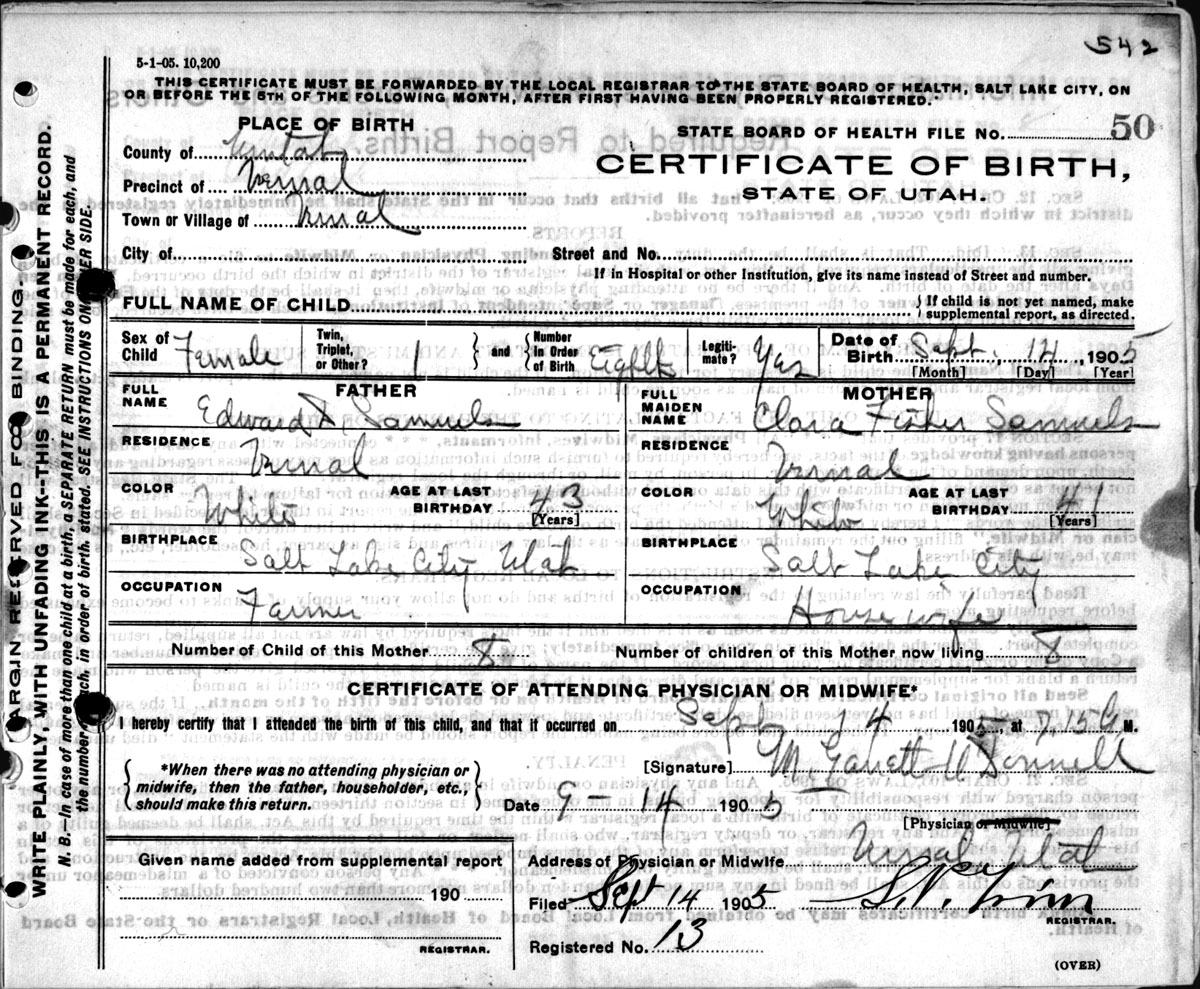 542
5-1-05. 10,200
THIS CERTIFICATE MUST BE FORWARDED BY THE LOCAL REGISTRAR TO THE STATE BOARD OF HEALTH, SALT LAKE CITY, ON
OR BEFORE THE 5TH OF THE FOLLOWING MONTH, AFTER FIRST HAVING BEEN PROPERLY REGISTERED.
PLACE OF BIRTH
STATE BOARD OF HEALTH FILE No. 50
County of Uintah
CERTIFICATE OF BIRTH,
Precinct of Vernal
STATE OF UTAH.
Town or Village of Vernal
City of Street and No.
If in Hospital or other Institution, give its name instead of Street and number.
FULL NAME OF CHILD
If child is not yet named, make
supplemental report, as directed.
Sex of Child Female
Twin, Triplet, or Other? 1 and Number in Order of Birth Eighth
Legitimate? Yes
Date of Birth Sept. 14, 1905
[Month] [Day] [Year]
FATHER
FULL NAME Edward D. Samuels
MOTHER
FULL MAIDEN NAME Clara Fisher Samuels
RESIDENCE Vernal
RESIDENCE Vernal
COLOR White AGE AT LAST BIRTHDAY 43 [Years]
COLOR White AGE AT LAST BIRTHDAY 41 [Years]
BIRTHPLACE Salt Lake City Utah
BIRTHPLACE Salt Lake City
OCCUPATION Farmer
OCCUPATION Housewife
Number of Child of this Mother 8 Number of children of this Mother now living 8
CERTIFICATE OF ATTENDING PHYSICIAN OR MIDWIFE*
I hereby certify that I attended the birth of this child, and that it occurred on Sept 14 1905, at 7.15 M.
*When there was no attending physician or
midwife, then the father, householder, etc.,
should make this return.
[Signature]
Date 9-14 1905
[Physician or Midwife]
Given name added from supplemental report
190
REGISTRAR.
Address of Physician or Midwife Vernal Utah
Filed Sept 14 1905
REGISTRAR.
Registered No. 13
(OVER)
MARGIN RESERVED FOR BINDING.
WRITE PLAINLY, WITH UNFADING INK--THIS IS A PERMANENT RECORD.
N. B.—In case of more than one child at a birth, a SEPARATE RETURN must be made for each, and
the number of each, in order of birth, stated. SEE INSTRUCTIONS ON OTHER SIDE.